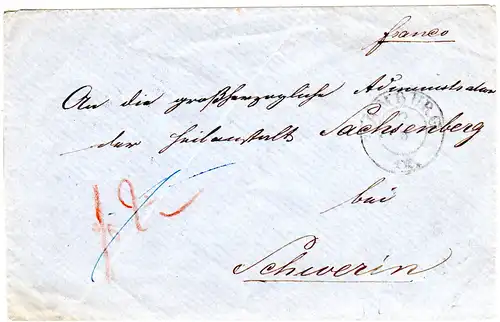 franco
An die großherzogliche Administration
der Heilanstalt Sachsenberg
bei
Schwerin